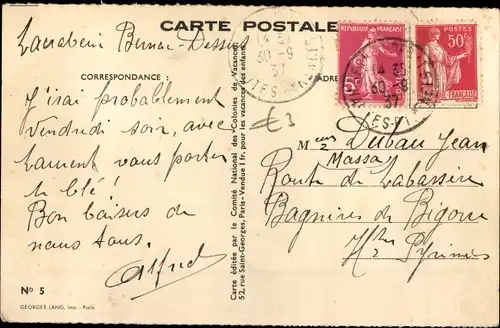 CARTE POSTALE
Bernac-Dessus
CORRESPONDANCE :
ADRE
J'irai probablement
Vendredi soir, avec
Laurent vous porter
le blé !
Bon baisers de
nous tous.
Alfred
No 5
GEORGES LANG, imp. - Paris
Carte éditée par le Comité National des "Colonies de Vacances"
52, rue Saint-Georges, Paris - Vendue 1 fr. pour les vacances des enfants.
RÉPUBLIQUE FRANÇAISE
15c
50c
FRANÇAISE
30 -9
37
£3
Dubau Jean
Massay
Route de Labassère
Bagnères de Bigorre
Htes Pyrénées